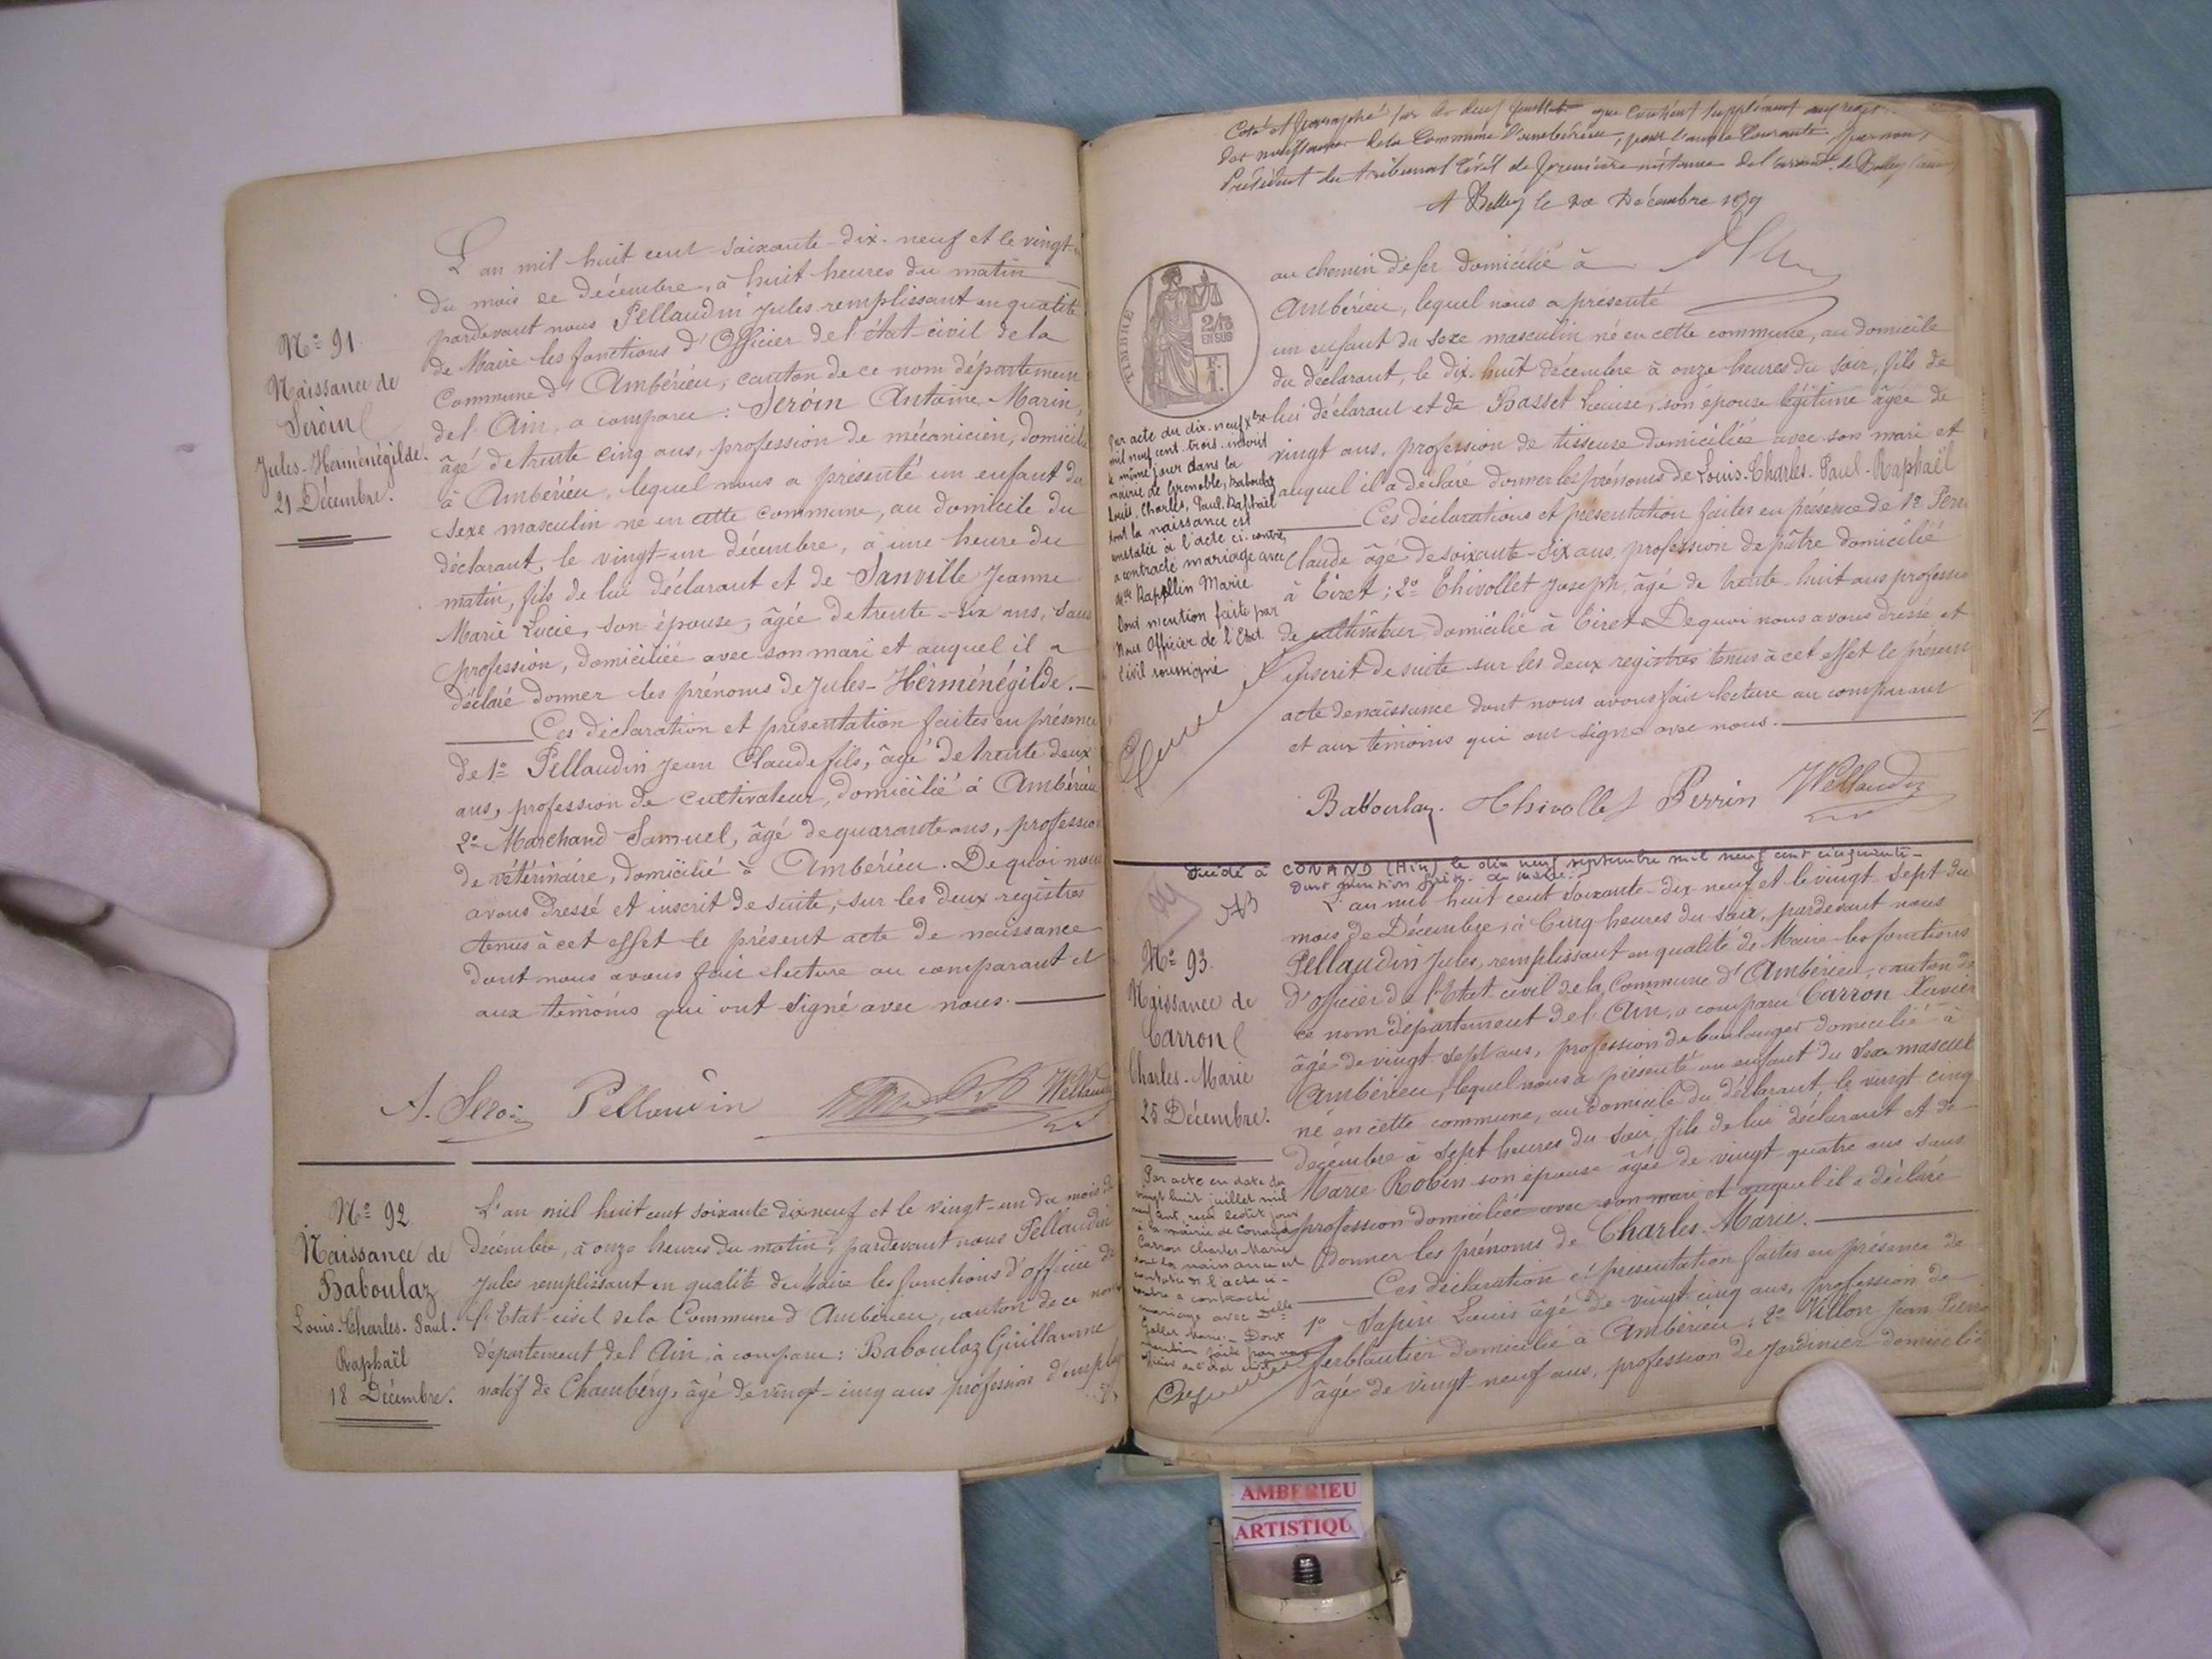 L'an mil huit cent soixante-dix-neuf et le vingt-
du mois de décembre, à huit heures du matin
pardevant nous Pellaudin Jules remplissant en qualité
de Maire les fonctions d'Officier de l'état-civil de la
Commune d'Ambérieu, canton de ce nom département
del'Ain, a comparu : Séroin Antoine Marin,
âgé de trente cinq ans, profession de mécanicien, domicilié
à Ambérieu, lequel nous a présenté un enfant du
Sexe masculin né en cette commune, au domicile du
déclarant, le vingt-un décembre, à une heure du
matin, fils de lui déclarant et de Sanville Jeanne
Marie Lucie, son épouse, âgée de trente-six ans, sans
profession, domiciliée avec son mari et auquel il a
déclaré donner les prénoms de Jules-Herménégilde.-
Ces déclaration et présentation faites en présence
de 1º Pellaudin Jean Claude fils, âgé de trente deux
ans, profession de cultivateur, domicilié à Ambérieu
2º Marchand Samuel, âgé de quarante ans, profession
de vétérinaire, domicilié à Ambérieu. De quoi nous
avons dressé et inscrit de suite, sur les deux registres
tenus à cet effet le présent acte de naissance
dont nous avons fait lecture au comparant et
aux témoins qui ont signé avec nous.
Nº 91.
Naissance de
Séroin
Jules-Herménégilde.
21 Décembre.
A. Seroin Pellaudin
Nº 92
Naissance de
Baboulaz
Louis-Charles-Paul-
Raphaël
18 Décembre.
L'an mil huit cent soixante dix neuf et le vingt-un du mois de
décembre, à onze heures du matin, pardevant nous Pellaudin
Jules remplissant en qualité de Maire les fonctions d'officier de
l'Etat-civil de la Commune d'Ambérieu, canton de ce nom
département del'Ain, a comparu : Baboulaz Guillaume
natif de Chambéry, âgé de vingt-cinq ans profession d'employé
Coté et paraphé par
des naissances de la Commune d'Ambérieu, pour l'année courante, par nous,
Président du tribunal Civil de première instance del' de Belley (ain)
A Belley le Décembre 1879
TIMBRE
2/10
EN SUS
au chemin de fer domicilié à
Ambérieu, lequel nous a présenté
un enfant du sexe masculin né en cette commune, au domicile
du déclarant, le dix-huit décembre à onze heures du soir, fils de
lui déclarant et de Basset Louise, son épouse légitime âgée de
vingt ans, profession de tisseuse domiciliée avec son mari et
auquel il a déclaré donner les prénoms de Louis-Charles-Paul-Raphaël
Ces déclarations et présentation faites en présence de 1º Perrin
Claude âgé de soixante-six ans, profession de pâtre domicilié
à Tiret ; 2º Thivollet Joseph, âgé de trente-huit ans profession
de cultivateur, domicilié à Tiret. De quoi nous avons dressé et
inscrit de suite sur les deux registres tenus à cet effet le présent
acte de naissance dont nous avons fait lecture au comparant
et aux témoins qui ont signé avec nous.
Par acte du dix-neuf Xbre
mil neuf cent trois inscrit
le même jour dans la
mairie de Grenoble, Baboulaz
Louis, Charles, Paul, Raphaël
dont la naissance est
constatée à l'acte ci-contre,
a contracté mariage avec
Mlle Rapellin Marie
Dont mention faite par
Nous Officier de l'Etat
Civil soussigné
Baboulaz. Thivollet Perrin
Décédé à CONAND (Ain) le dix neuf septembre mil neuf cent cinquante-
Nº 93.
Naissance de
Carron
Charles-Marie
25 Décembre.
L'an mil huit cent soixante-dix-neuf et le vingt-sept du
mois de Décembre, à Cinq heures du soir, pardevant nous
Pellaudin Jules, remplissant en qualité de Maire les fonctions
d'officier de l'Etat-civil de la Commune d'Ambérieu, canton de
ce nom département del'Ain, a comparu Carron Xavier
âgé de vingt sept ans, profession de boulanger domicilié à
Ambérieu, lequel nous a présenté un enfant du Sexe masculin
né en cette commune, au domicile du déclarant, le vingt cinq
décembre à sept heures du soir, fils de lui déclarant et de
Marie Robin son épouse âgée de vingt quatre ans sans
profession domiciliée avec son mari et auquel il a déclaré
donner les prénoms de Charles-Marie.
Ces déclaration et présentation faites en présence de
1º Sapin Louis âgé de vingt cinq ans, profession de
ferblantier domicilié à Ambérieu ; 2º Villon Jean Pierre
âgé de vingt-neuf ans, profession de Jardinier domicilié
Par acte en date du
vingt huit juillet mil
à la mairie de Conand
Carron Charles-Marie
dont la naissance est
l'acte ci-
contre a contracté
mariage avec Delle
Dont
mention faite par nous
AMBERIEU
ARTISTIQU